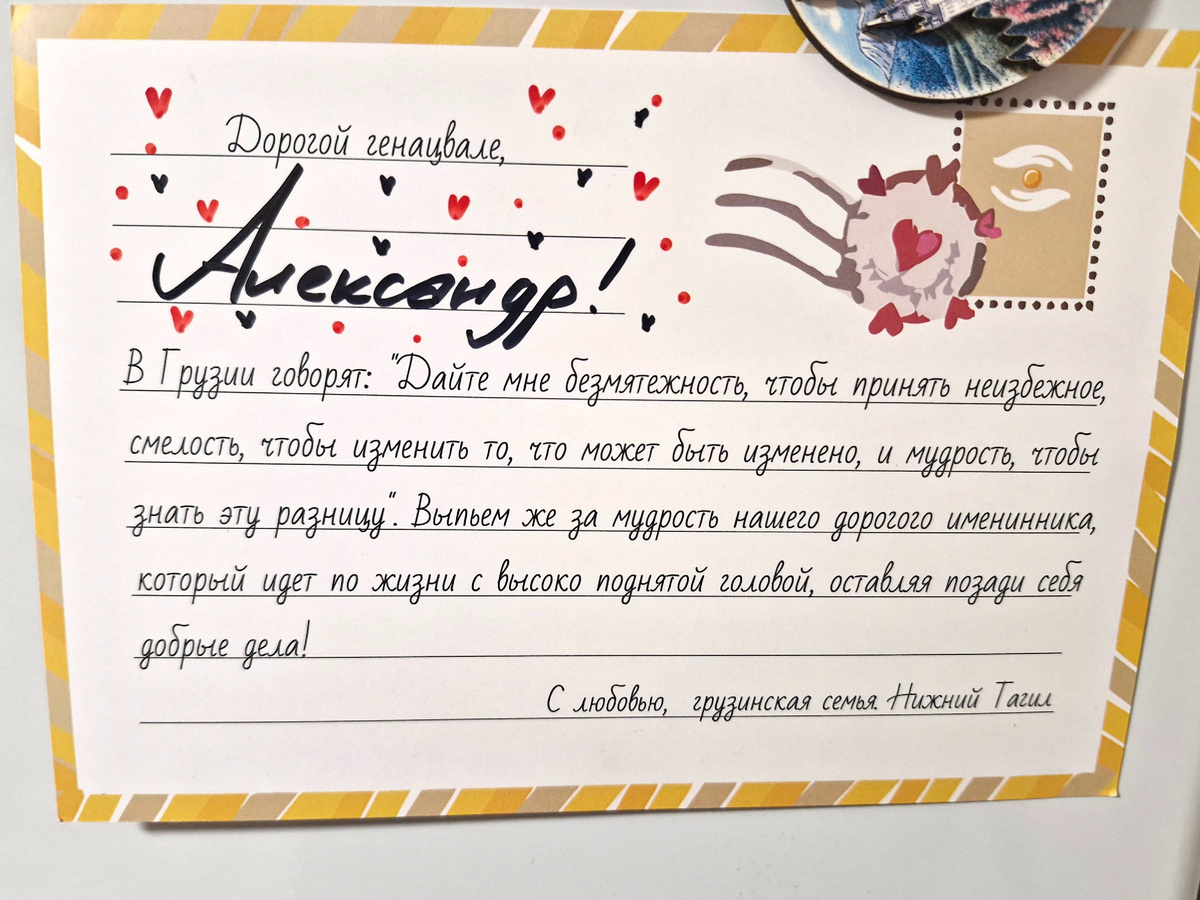 Дорогой генацвале,
Александр!
В Грузии говорят: "Дайте мне безмятежность, чтобы принять неизбежное,
смелость, чтобы изменить то, что может быть изменено, и мудрость, чтобы
знать эту разницу". Выпьем же за мудрость нашего дорогого именинника,
который идет по жизни с высоко поднятой головой, оставляя позади себя
добрые дела!
С любовью, грузинская семья. Нижний Тагил